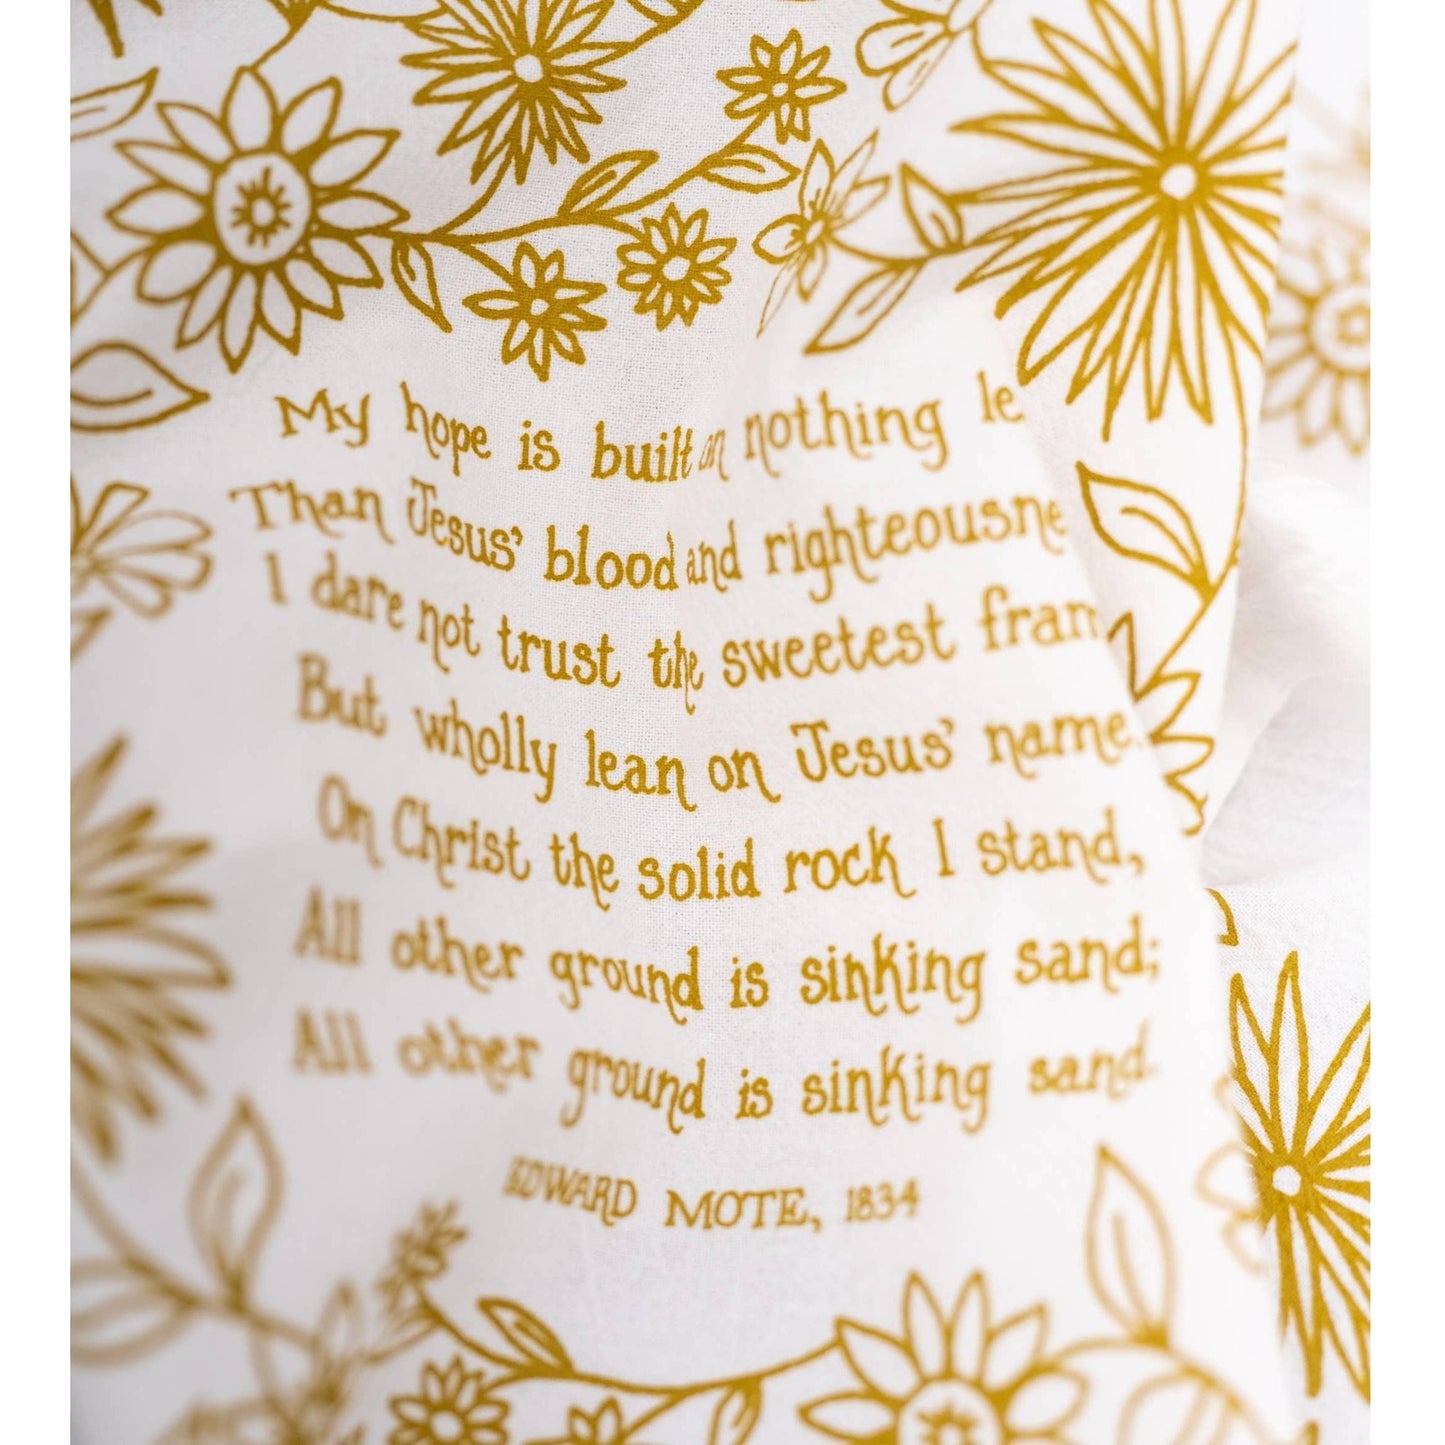 My hope is built on nothing le
Than Jesus' blood and righteousne
I dare not trust the sweetest fram
But wholly lean on Jesus' name.
On Christ the solid rock I stand,
All other ground is sinking sand;
All other ground is sinking sand.
EDWARD MOTE, 1834